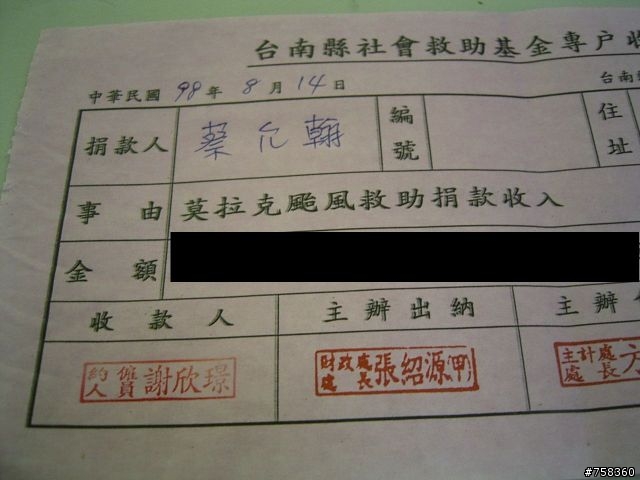 台南縣社會救助基金專戶收
中華民國 98 年 8 月 14 日 台南
捐款人 蔡允翰 編號 住址
事由 莫拉克颱風救助捐款收入
金額
收款人 主辦出納 主辦
約僱人員 謝欣璟 財政處處長 張紹源(甲) 主計處處長 方
#758360